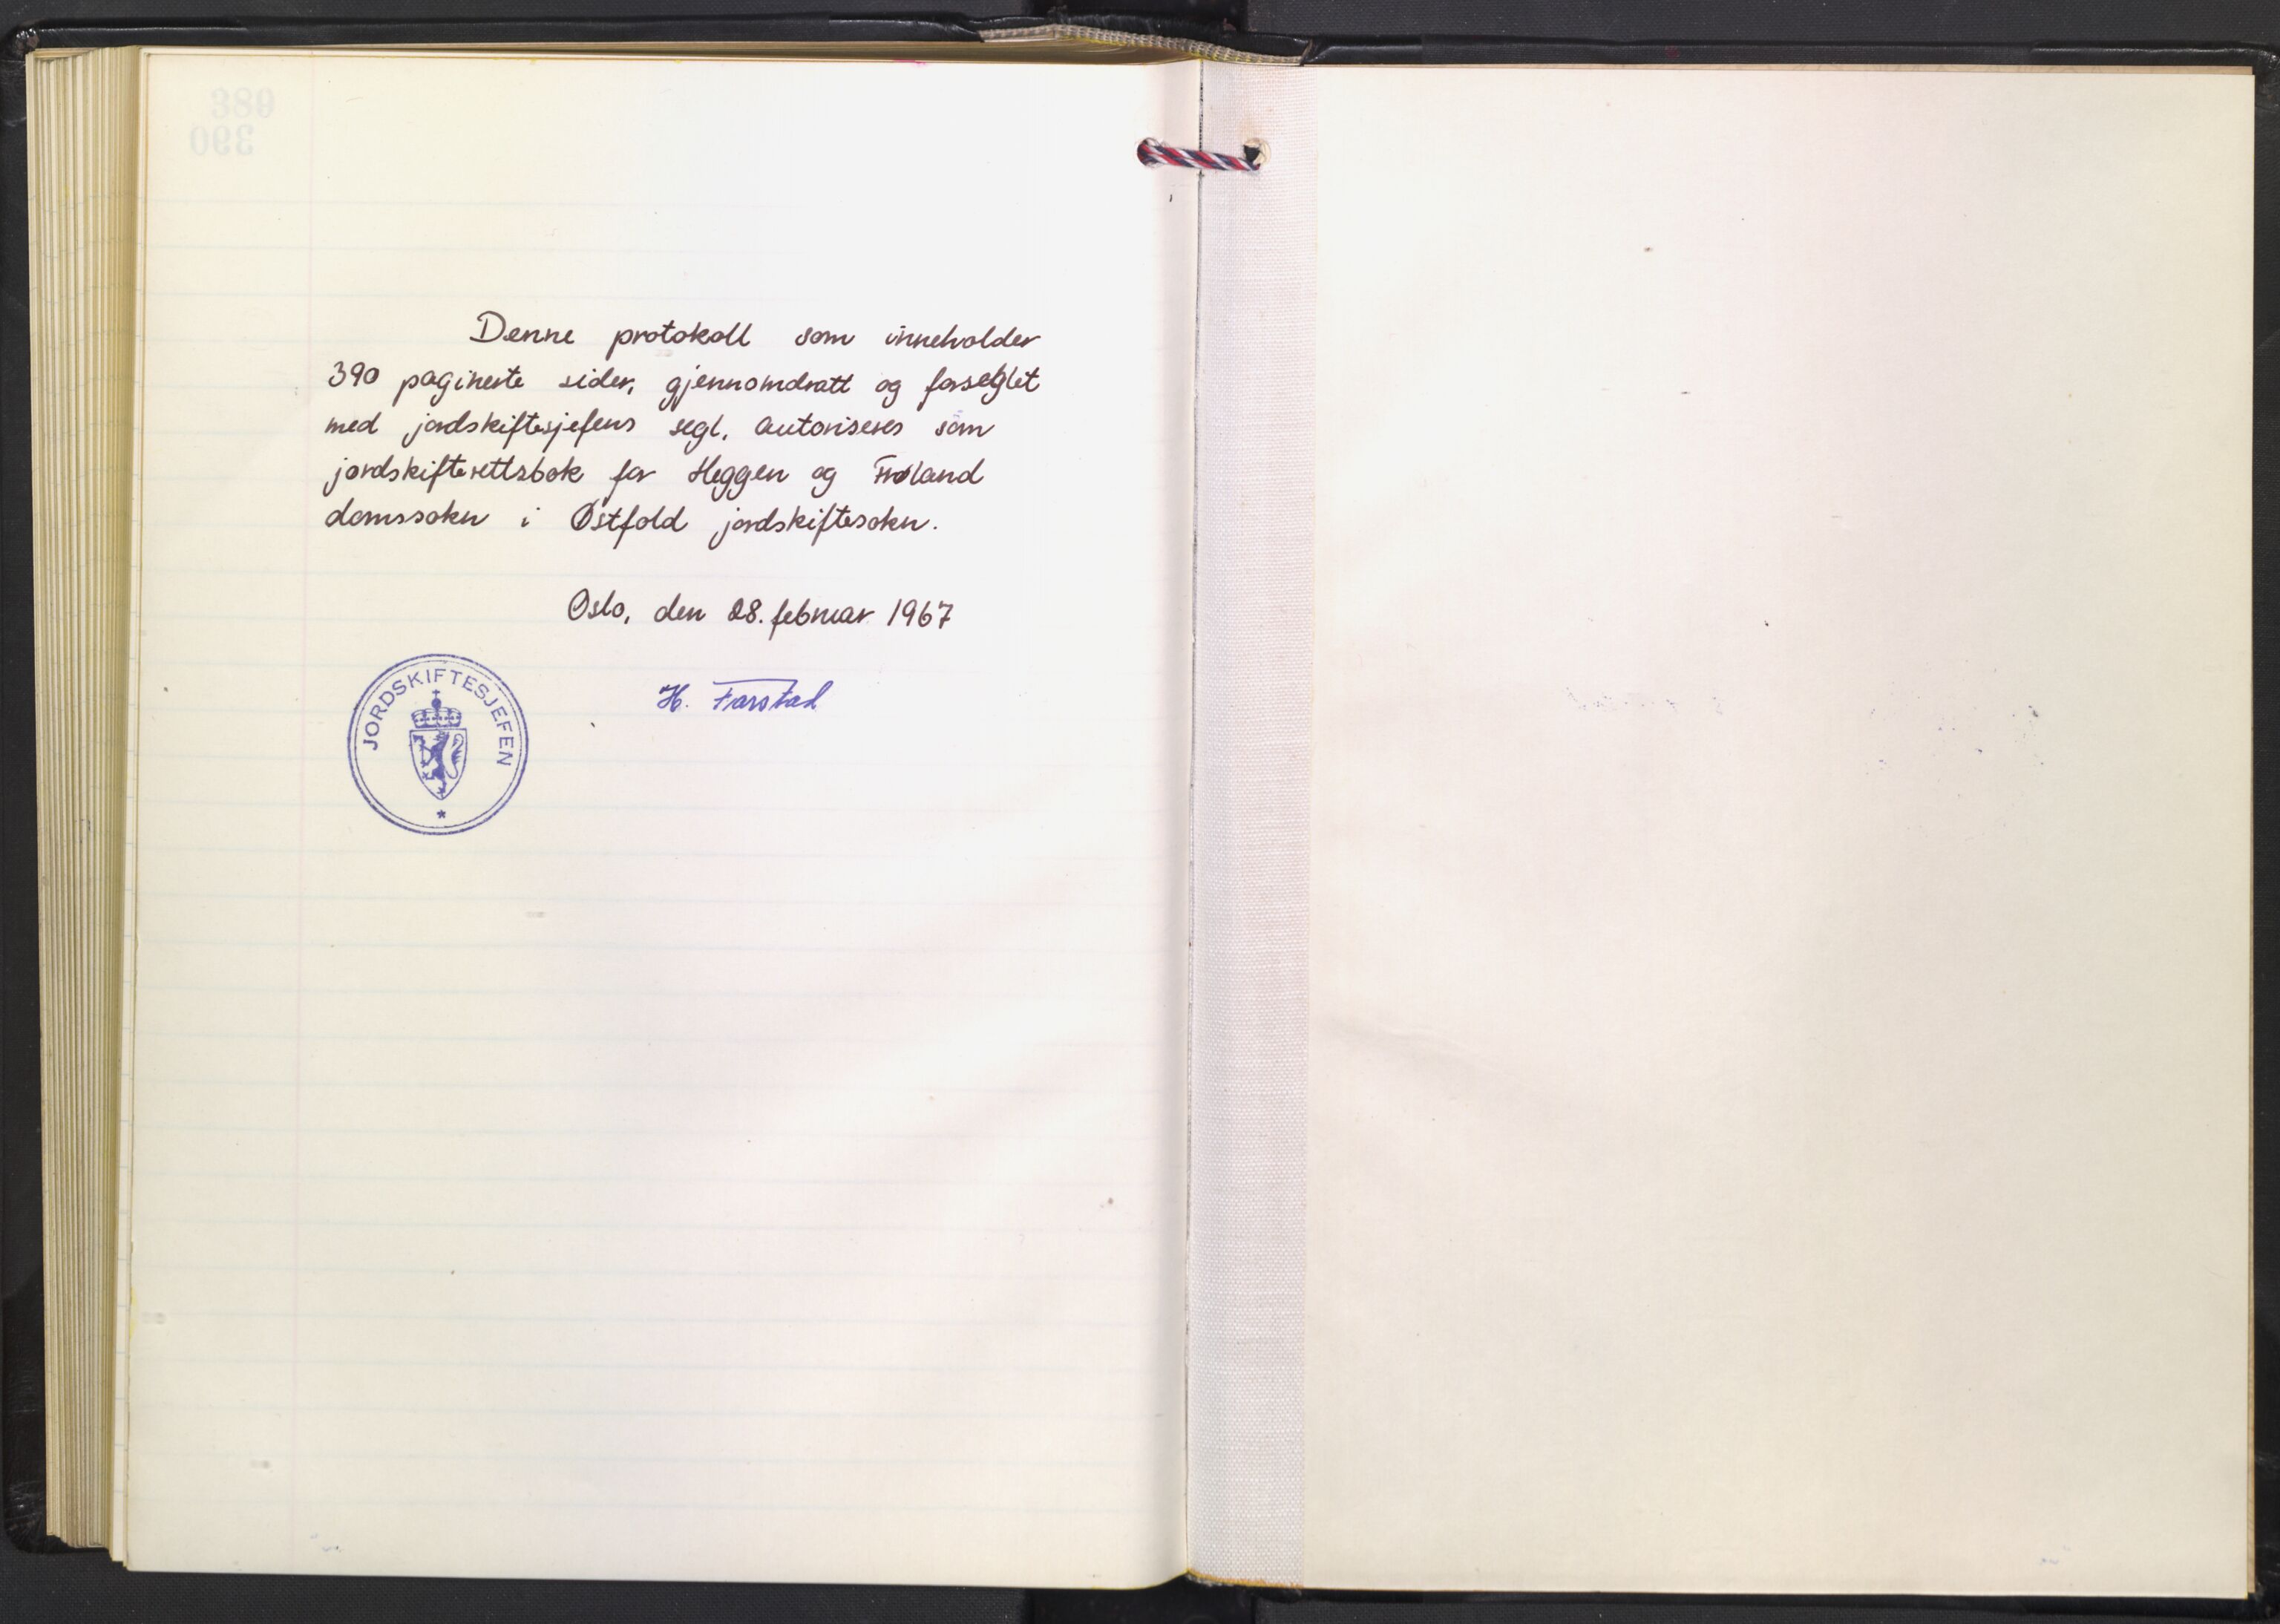 389
390
Denne protokoll som inneholder
390 paginerte sider, gjennomdratt og forseglet
med jordskiftesjefens segl, autoriseres som
jordskifterettsbok for Heggen og Frøland
domssokn i Østfold jordskiftesokn.
Oslo, den 28. februar 1967
H. Farstad
JORDSKIFTESJEFEN
*